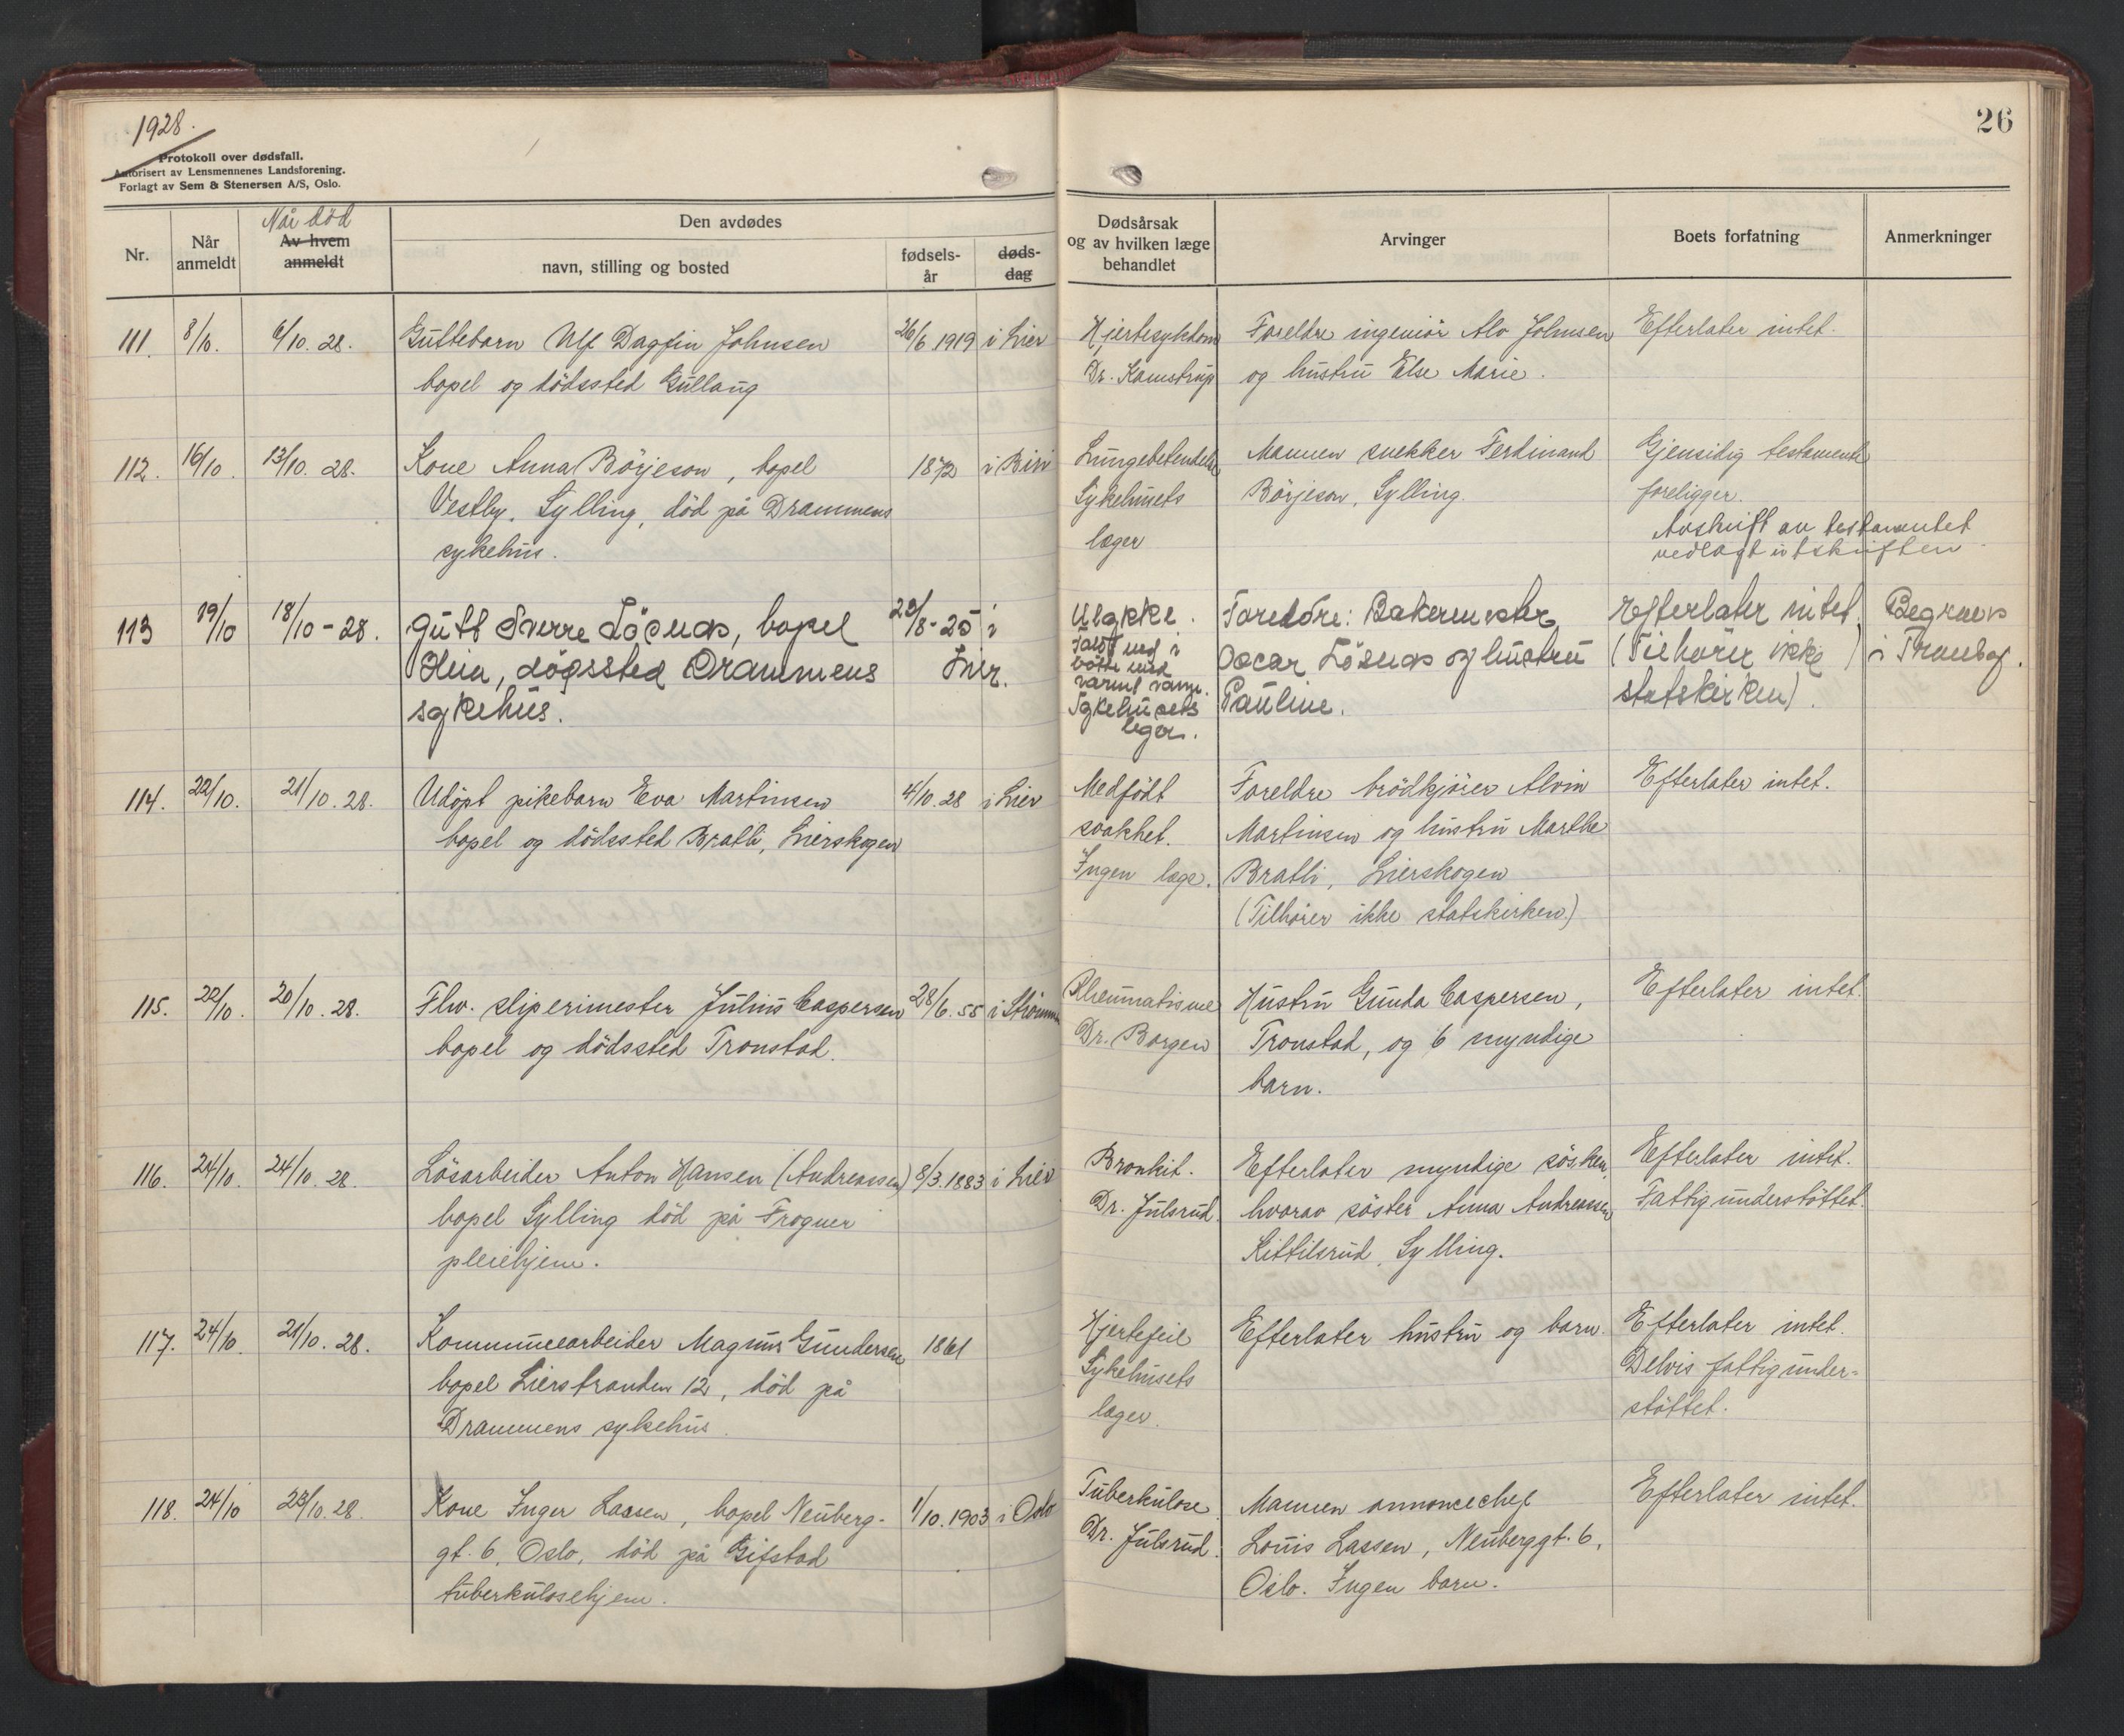 1928.
Protokoll over dødsfall.
Autorisert av Lensmennenes Landsforening.
Forlagt av Sem & Stenersen A/S, Oslo.
26
Nr.
Når anmeldt
Når död
Av hvem anmeldt
Den avdødes
navn, stilling og bosted
fødsels-år
døds-dag
Dødsårsak og av hvilken læge behandlet
Arvinger
Boets forfatning
Anmerkninger
111. 8/10. 6/10. 28. Guttebarn Ulf Dagfin Johnsen 26/6 1919 i Lier Hjertesykdom Foreldre ingeniör Alv Johnsen Efterlater intet.
bopel og dödssted Gullaug Dr. Kamstrup og hustru Else Marie.
112. 16/10. 13/10. 28. Kone Anna Börjeson, bopel 1872 i Lungebetendelse Mannen snekker Ferdinand Gjensidig testamente
Vestby, Sylling, död på Drammens Sykehusets Börjeson, Sylling. foreligger.
sykehus. læger Avskrift av testamentet
vedlagt utskriften.
113 19/10 18/10-28. Gutt Sverre bopel /8-25 i Ulykke. Foreldre: Bakermester Efterlater intet. Begraves
dödssted Drammens Lier. Falt ned i Oscar og hustru (Tilhörer ikke i Tranby.
sykehus. bötte med Pauline. statskirken).
varmt vann.
Sykehusets
leger.
114. 22/10. 21/10. 28. Udöpt pikebarn Eva Martinsen 4/10. 28 i Lier Medfödt Foreldre brödkjörer Alvin Efterlater intet.
bopel og dödssted Bratli, Lierskogen svakhet. Martinsen og hustru Marthe
Ingen læge. Bratli, Lierskogen
(Tilhörer ikke statskirken)
115. 22/10. 20/10. 28. Fhv. sliperimester Julius Caspersen 28/6. 55 i Rheumatisme Hustru Gunda Caspersen, Efterlater intet.
bopel og dödssted Tronstad. Dr. Borgen Tronstad, og 6 myndige
barn.
116. 24/10. 24/10. 28. Lösarbeider Anton Hansen (Andreassen) 8/3. 1883 i Lier Bronkit. Efterlater myndige sösken, Efterlater intet.
bopel Sylling död på Frogner Dr. Julsrud. hvorav söster Anna Andreassen Fattigunderstöttet.
pleiehjem. Kittilsrud, Sylling.
117. 24/10. 21/10. 28. Kommunearbeider Magnus Gundersen 1861 Hjertefeil Efterlater hustru og barn. Efterlater intet.
bopel Lierstranden 12, död på Sykehusets Delvis fattigunder-
Drammens sykehus. læger. stöttet.
118. 24/10 23/10. 28. Kone Inger Lassen, bopel Neuberg- 1/10. 1903 i Oslo Tuberkulose Mannen annoncechef Efterlater intet.
gt. 6, Oslo, död på Gifstad Dr. Julsrud. Louis Lassen, Neuberggt. 6,
tuberkulosehjem. Oslo. Ingen barn.